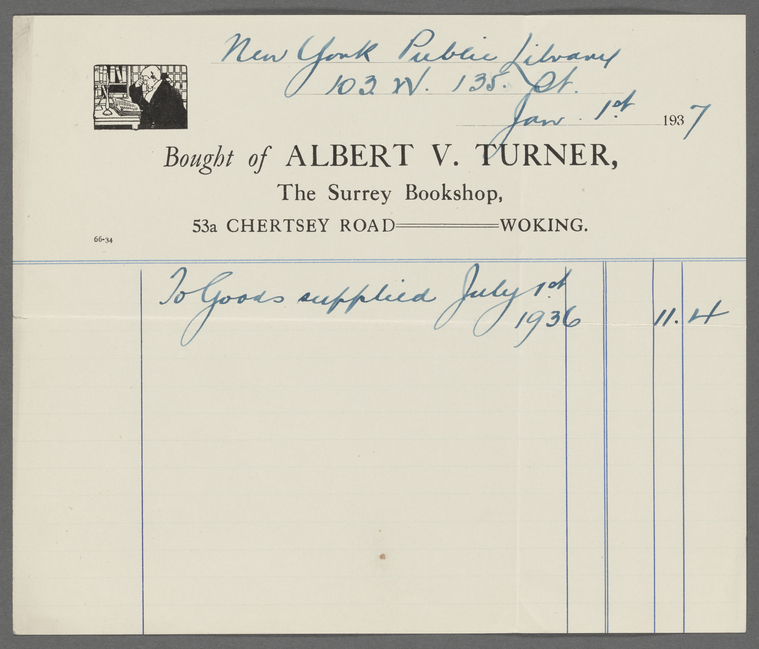 New York Public Library
103 W. 135. St.
Jan. 1st 1937
Bought of ALBERT V. TURNER,
The Surrey Bookshop,
53a CHERTSEY ROAD WOKING.
66-34
To Goods supplied July 1st
1936 11. 4